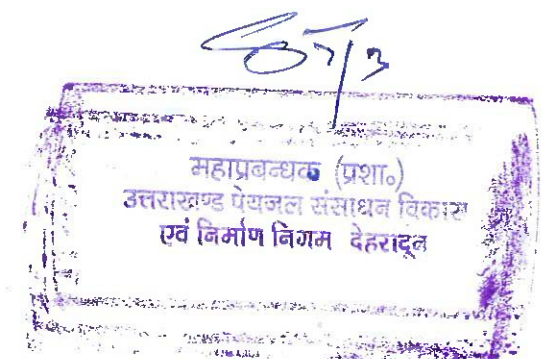 महाप्रबन्धक (प्रशा०)
उत्तराखण्ड पेयजल संसाधन विकास
एवं निर्माण निगम देहरादून